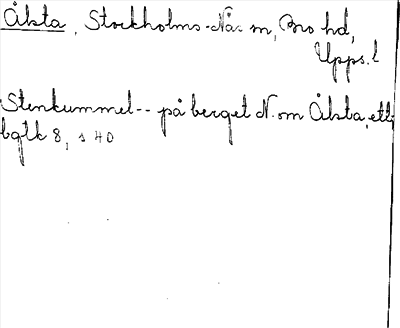 Åksta, Stockholms-Näs sn, Bro hd,
Upps. l
Stenkummel -- på berget N. om Åksta, etts
bgtl 8, s 40